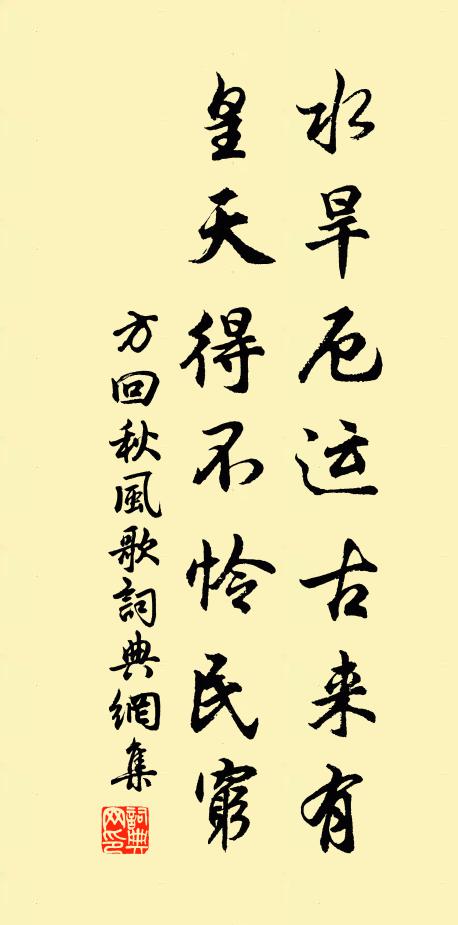 水旱厄运古来有
皇天得不怜民窮
方回秋風歌詞典網集
詞典网印